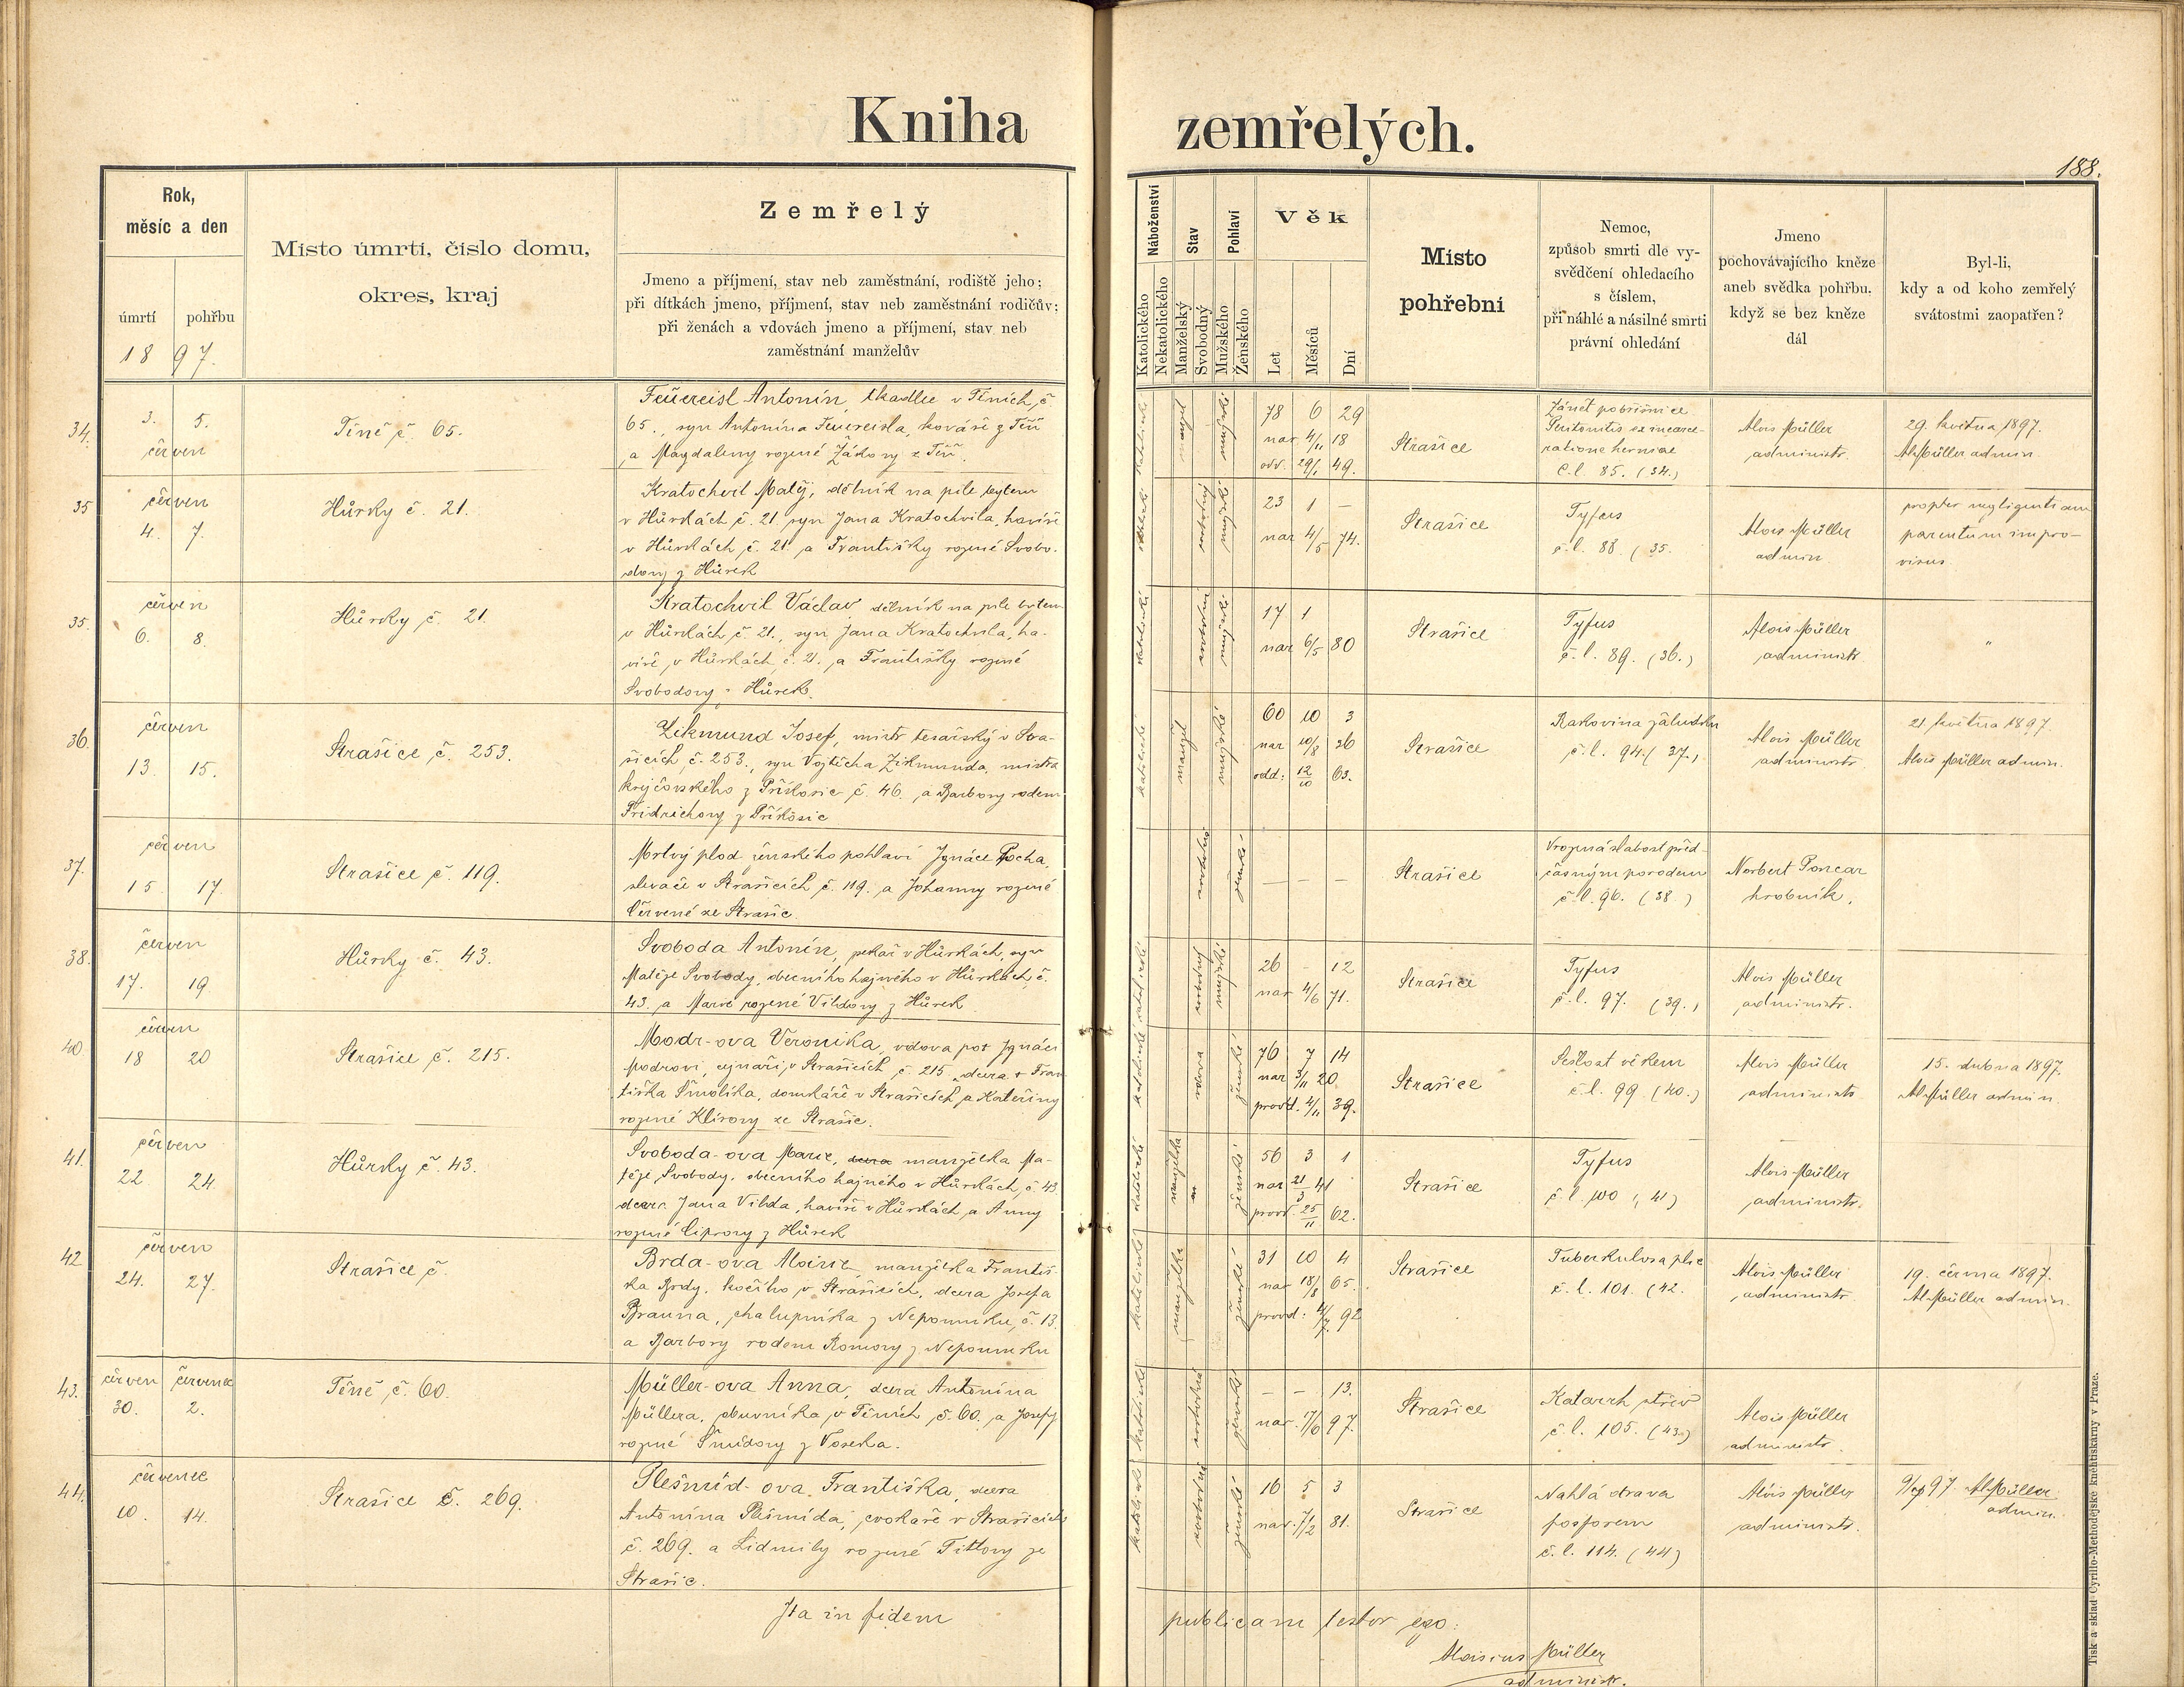 Kniha zemřelých.
188.
Rok,
měsíc a den
úmrtí pohřbu
18 97.
Místo úmrtí, číslo domu,
okres, kraj
Zemřelý
Jmeno a příjmení, stav neb zaměstnání, rodiště jeho;
při dítkách jmeno, příjmení, stav neb zaměstnání rodičův;
při ženách a vdovách jmeno a příjmení, stav neb
zaměstnání manželův
Náboženství
Katolického
Nekatolického
Stav
Manželský
Svobodný
Pohlaví
Mužského
Ženského
Věk
Let
Měsíců
Dní
Místo
pohřební
Nemoc,
způsob smrti dle vy-
svědčení ohledacího
s číslem,
při náhlé a násilné smrti
právní ohledání
Jmeno
pochovávajícího kněze
aneb svědka pohřbu,
když se bez kněze
dál
Byl-li,
kdy a od koho zemřelý
svátostmi zaopatřen?
34.
3. 5.
červen
Těně č. 65.
Feüereisl Antonín, tkadlec v Těních, č.
65., syn Antonína Feuereisla, kováře z Těň
a Magdaleny rozené Žákovy z Těň.
78 6 29
nar. 4/11 18
odd. 29/1 49.
Strašice
Zánět pobřišnice
Peritonitis ex incarce-
ratione herniae
č. l. 85. (34.)
Alois Müller
administr.
29. května 1897.
Al Müller admin.
35
červen
4. 7.
Hůrky č. 21.
Kratochvil Matěj, dělník na pile bytem
v Hůrkách č. 21 syn Jana Kratochvila, havíře
v Hůrkách č. 21 a Františky rozené Svobo-
dovy z Hůrek
23 1 –
nar 4/5 74.
Strašice
Tyfus
č. l. 88. (35.
Alois Müller
admin
propter negligentiam
parentum impro-
visus
35.
červen
6. 8.
Hůrky č. 21.
Kratochvil Václav dělník na pile bytem
v Hůrkách č. 21., syn Jana Kratochvila, ha-
víře v Hůrkách č. 21. a Františky rozené
Svobodovy z Hůrek.
17 1
nar 6/5 80
Strašice
Tyfus
č. l. 89. (36.)
Alois Müller
administr.
"
36.
červen
13. 15.
Strašice č. 253.
Zikmund Josef, mistr tesařský v Stra-
šicích č. 253., syn Vojtěcha Zikmunda, mistra
krejčovského z Příkosic č. 46. a Barbory rodem
Fridrichovy z Příkosic
60 10 3
nar 10/8 36
odd: 12/10 63.
Strašice
Rakovina žaludku
č. l. 94. (37.)
Alois Müller
administr.
21 května 1897.
Alois Müller admin.
37.
červen
15 17.
Strašice č. 119.
Mrtvý plod ženského pohlaví Ignáce Pocha,
slevače v Strašicích č. 119. a Johanny rozené
Červené ze Strašic.
– – –
Strašice
Vrozená slabost před-
časným porodem
č. l. 96. (38.)
Norbert Poncar
hrobník.
38.
červen
17. 19
Hůrky č. 43.
Svoboda Antonín, pekař v Hůrkách, syn
Matěje Svobody, obecního hajného v Hůrkách č.
43. a Marie rozené Vildovy z Hůrek
26 – 12
nar 4/6 71.
Strašice
Tyfus
č. l. 97. (39.)
Alois Müller
administr.
40.
červen
18 20
Strašice č. 215.
Modr-ova Veronika, vdova po† Ignáci
Modrovi, cvjnaři, v Strašicích č. 215. dcera † Fran-
tiška Smolíka, domkáře v Strašicích a Kateřiny
rozené Klírovy ze Strašic.
76 7 14
nar 3/11 20
provd. 4/11 39.
Strašice
Sešlost věkem
č. l. 99. (40.)
Alois Müller
administr.
15. dubna 1897.
Al Müller admin.
41.
červen
22 24.
Hůrky č. 43.
Svoboda-ova Marie, dcera manželka Ma-
těje Svobody, obecního hajného v Hůrkách č. 43
dcera Jana Vilda, havíře v Hůrkách a Anny
rozené Ciprovy z Hůrek
56 3 1
nar 21/3 41
provd. 25/11 62.
Strašice
Tyfus
č. l. 100 (41)
Alois Müller
administr.
42
červen
24. 27.
Strašice č.
Brda-ova Marie manželka Františ-
ka Brdy, kočího v Strašicích, dcera Josefa
Brauna, chalupníka z Nepomuku, č. 13.
a Barbory rodem Romovy z Nepomuku
31 10 4
nar 18/8 65.
provd: 4/7 92
Strašice
Tuberkulosa plic
č. l. 101. (42.
Alois Müller
administr.
19. června 1897.
Al Müller admin.
43.
červen červenec
30. 2.
Těně č. 60.
Müller-ova Anna, dcera Antonína
Müllera, obuvníka v Těních č. 60. a Josefy
rozené Šmídovy z Voseka.
– – 13.
nar. 17/6 97.
Strašice
Katarrh střev
č. l. 105. (43.)
Alois Müller
administr.
44.
červenec
10. 14.
Strašice č. 269.
Plešmíd-ova Františka, dcera
Antonína Plešmída, cvokaře v Strašicích
č. 269. a Lidmily rozené Tittlovy ze
Strašic.
16 5 3
nar. 7/2 81.
Strašice
Nahlá otrava
fosforem
č. l. 114. (44)
Alois Müller
administr.
97. Al Müller
admin.
Ita in fidem publicam testor ego:
Aloisius Müller
administr.
Tisk a sklad Cyrillo-Methodějské knihtiskárny v Praze.